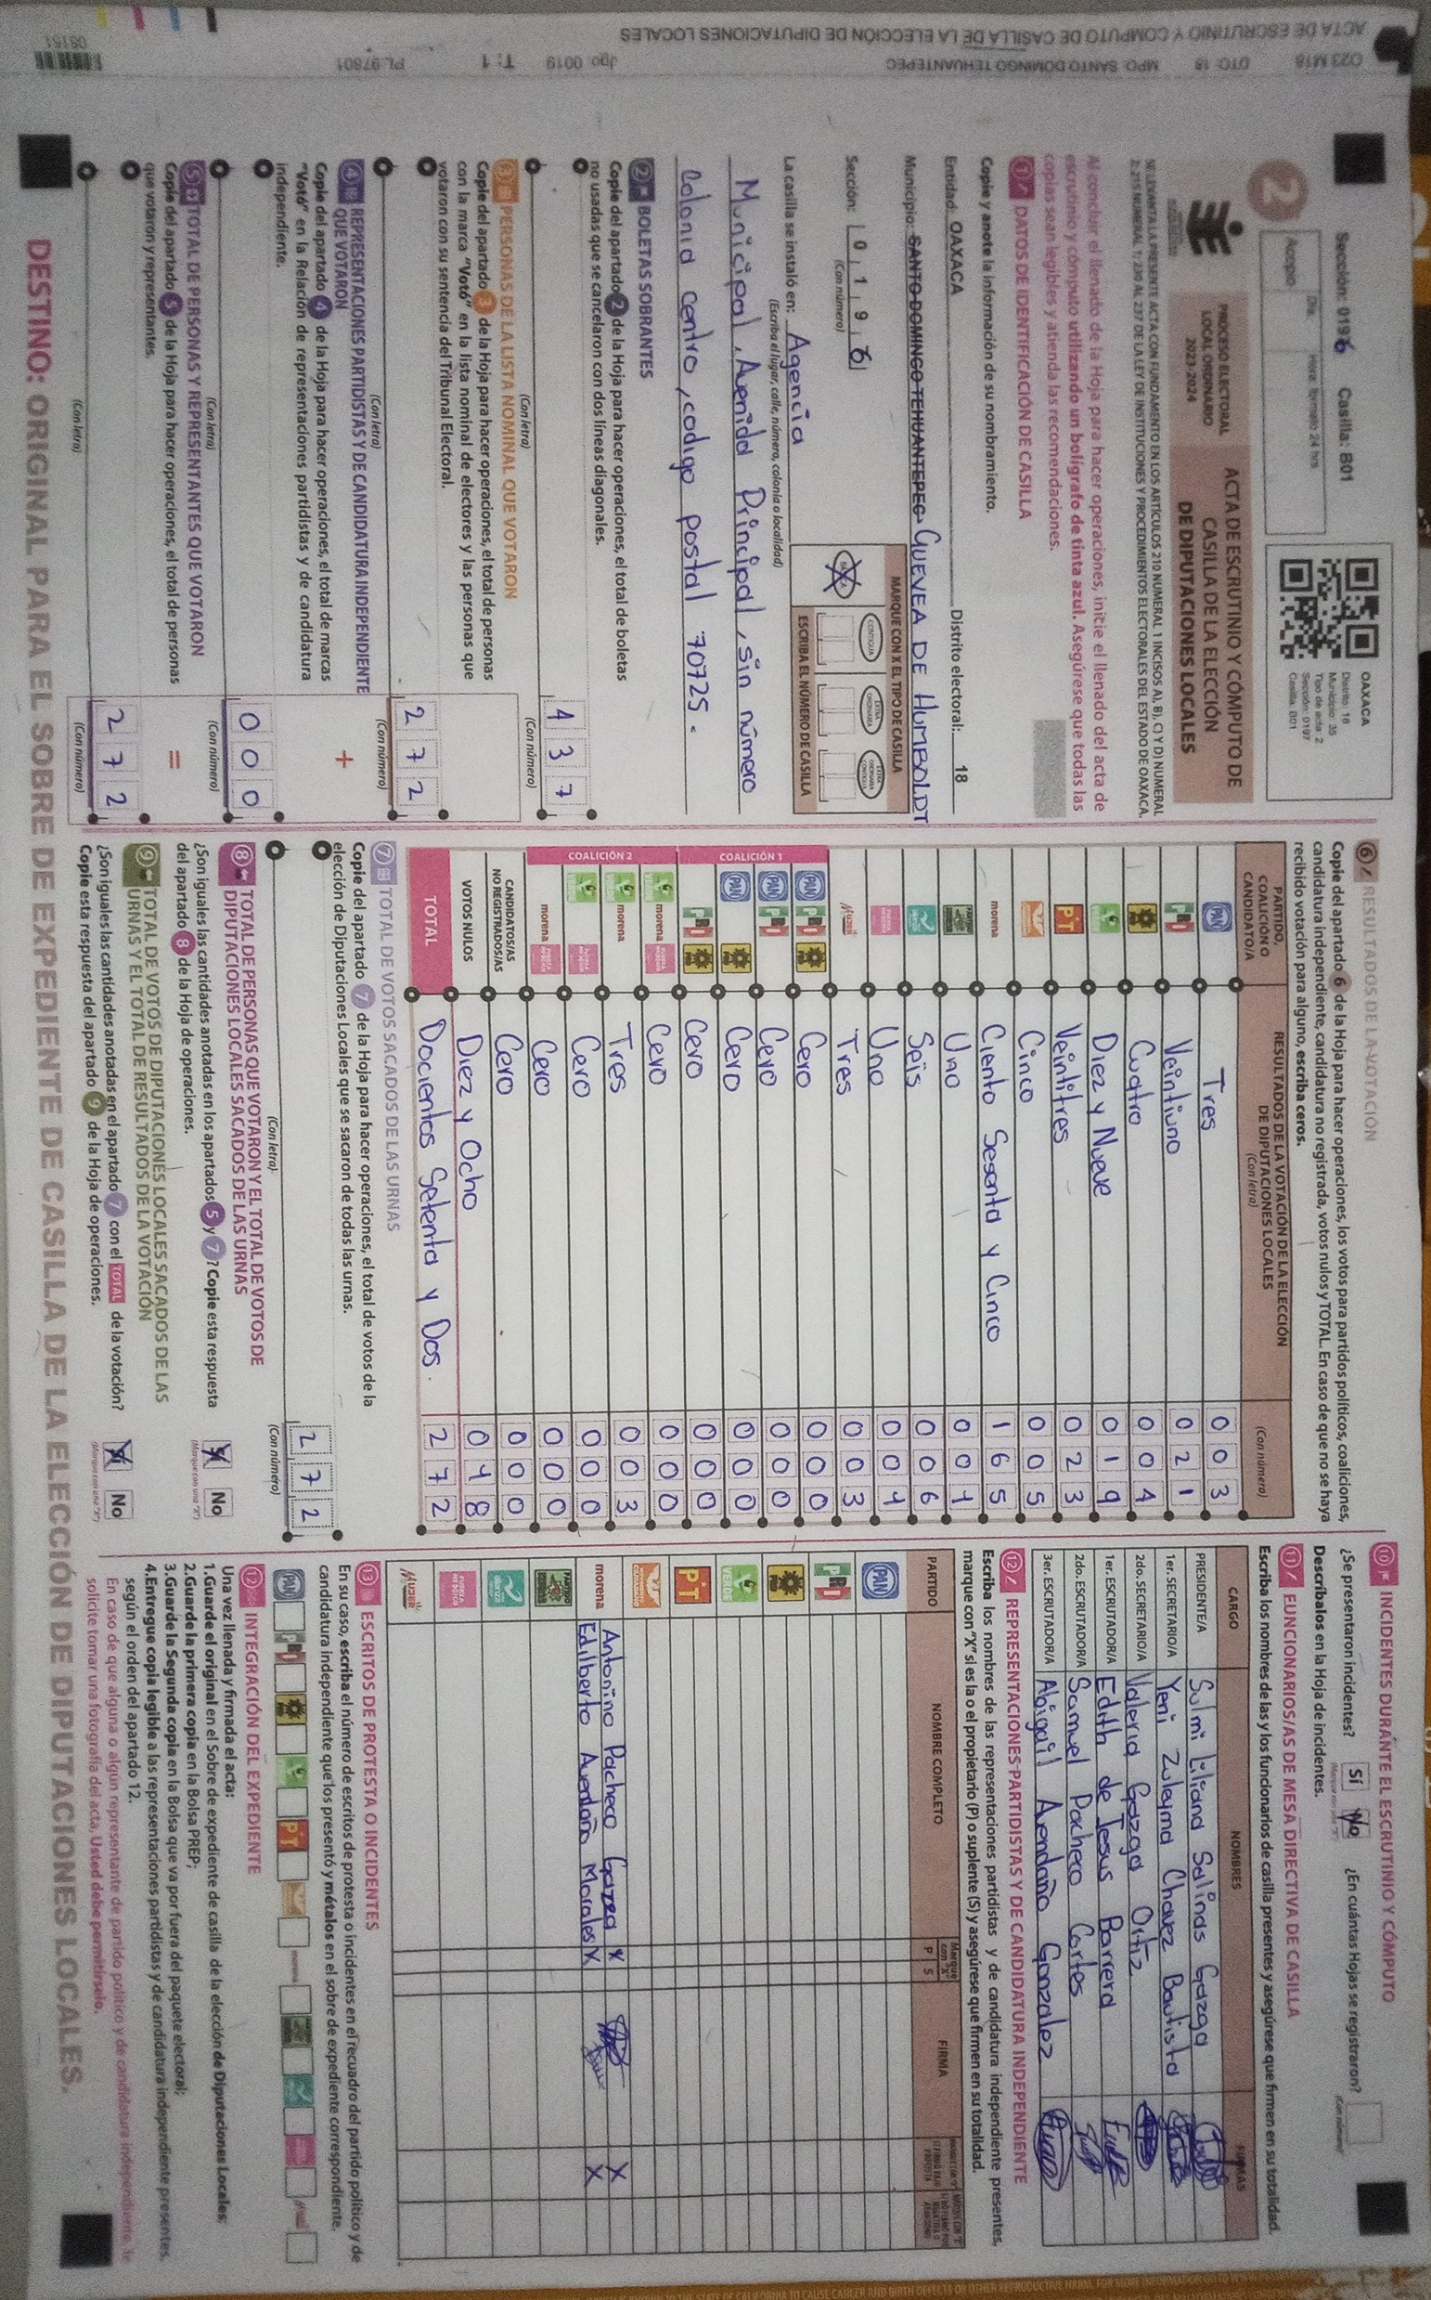 Sección: 0196 Casilla: B01
Día:
Hora: formato 24 hrs
Acopio
2
OAXACA
Distrito: 18
Municipio: 35
Tipo de acta: 2
Sección: 0197
Casilla: B01
PROCESO ELECTORAL
LOCAL ORDINARIO
2023-2024
ACTA DE ESCRUTINIO Y CÓMPUTO DE
CASILLA DE LA ELECCIÓN
DE DIPUTACIONES LOCALES
SE LEVANTA LA PRESENTE ACTA CON FUNDAMENTO EN LOS ARTÍCULOS 210 NUMERAL 1 INCISOS A), B), C) Y D) NUMERAL
2; 215 NUMERAL 1; 230 AL 237 DE LA LEY DE INSTITUCIONES Y PROCEDIMIENTOS ELECTORALES DEL ESTADO DE OAXACA.
Al concluir el llenado de la Hoja para hacer operaciones, inicie el llenado del acta de
escrutinio y cómputo utilizando un bolígrafo de tinta azul. Asegúrese que todas las
copias sean legibles y atienda las recomendaciones.
1 DATOS DE IDENTIFICACIÓN DE CASILLA
Copie y anote la información de su nombramiento.
Entidad: OAXACA Distrito electoral: 18
Municipio: SANTO DOMINGO TEHUANTEPEC. GUEVEA DE HUMBOLDT
Sección: 0 1 9 6
(Con número)
MARQUE CON X EL TIPO DE CASILLA
ESCRIBA EL NÚMERO DE CASILLA
La casilla se instaló en: Agencia
(Escriba el lugar, calle, número, colonia o localidad)
Municipal, Avenida Principal, sin número
Colonia centro, codigo postal 70725.
2 BOLETAS SOBRANTES
Copie del apartado 2 de la Hoja para hacer operaciones, el total de boletas
no usadas que se cancelaron con dos líneas diagonales.
4 3 7
(Con letra) (Con número)
3 PERSONAS DE LA LISTA NOMINAL QUE VOTARON
Copie del apartado 3 de la Hoja para hacer operaciones, el total de personas
con la marca "Votó" en la lista nominal de electores y las personas que
votaron con su sentencia del Tribunal Electoral.
2 7 2
(Con letra) (Con número)
4 REPRESENTACIONES PARTIDISTAS Y DE CANDIDATURA INDEPENDIENTE
QUE VOTARON
+
Copie del apartado 4 de la Hoja para hacer operaciones, el total de marcas
"Votó" en la Relación de representaciones partidistas y de candidatura
independiente.
0 0 0
(Con letra) (Con número)
5 TOTAL DE PERSONAS Y REPRESENTANTES QUE VOTARON
=
Copie del apartado 5 de la Hoja para hacer operaciones, el total de personas
que votaron y representantes.
2 7 2
(Con letra) (Con número)
6 RESULTADOS DE LA VOTACIÓN
Copie del apartado 6 de la Hoja para hacer operaciones, los votos para partidos políticos, coaliciones,
candidatura independiente, candidatura no registrada, votos nulos y TOTAL. En caso de que no se haya
recibido votación para alguno, escriba ceros.
PARTIDO, COALICIÓN O CANDIDATO/A
RESULTADOS DE LA VOTACIÓN DE LA ELECCIÓN DE DIPUTACIONES LOCALES
(Con letra) (Con número)
PAN Tres 0 0 3
PRI Veintiuno 0 2 1
PRD Cuatro 0 0 4
Diez y Nueve 0 1 9
PT Veintitres 0 2 3
Cinco 0 0 5
morena Ciento Sesenta y Cinco 1 6 5
Uno 0 0 1
Seis 0 0 6
Uno 0 0 1
Mujer Tres 0 0 3
COALICIÓN 1
PAN PRI PRD Cero 0 0 0
PAN PRI Cero 0 0 0
PAN PRD Cero 0 0 0
PRI PRD Cero 0 0 0
COALICIÓN 2
morena Cero 0 0 0
morena Tres 0 0 3
Cero 0 0 0
morena Cero 0 0 0
CANDIDATOS/AS NO REGISTRADOS/AS Cero 0 0 0
VOTOS NULOS Diez y Ocho 0 4 8
TOTAL Docientos Setenta y Dos. 2 7 2
7 TOTAL DE VOTOS SACADOS DE LAS URNAS
Copie del apartado 7 de la Hoja para hacer operaciones, el total de votos de la
elección de Diputaciones Locales que se sacaron de todas las urnas.
2 7 2
(Con letra) (Con número)
8 TOTAL DE PERSONAS QUE VOTARON Y EL TOTAL DE VOTOS DE
DIPUTACIONES LOCALES SACADOS DE LAS URNAS
¿Son iguales las cantidades anotadas en los apartados 5 y 7? Copie esta respuesta
del apartado 8 de la Hoja de operaciones.
Sí No
(Marque con una "X")
9 TOTAL DE VOTOS DE DIPUTACIONES LOCALES SACADOS DE LAS
URNAS Y EL TOTAL DE RESULTADOS DE LA VOTACIÓN
¿Son iguales las cantidades anotadas en el apartado 7 con el TOTAL de la votación?
Copie esta respuesta del apartado 9 de la Hoja de operaciones.
Sí No
(Marque con una "X")
10 INCIDENTES DURANTE EL ESCRUTINIO Y CÓMPUTO
¿Se presentaron incidentes? Sí No ¿En cuántas Hojas se registraron?
(Marque con una "X") (Con número)
Descríbalos en la Hoja de incidentes.
11 FUNCIONARIOS/AS DE MESA DIRECTIVA DE CASILLA
Escriba los nombres de las y los funcionarios de casilla presentes y asegúrese que firmen en su totalidad.
CARGO NOMBRES FIRMAS
PRESIDENTE/A Sulmi Liliana Salinas Gazga
1er. SECRETARIO/A Yeni Zuleyma Chavez Bautista
2do. SECRETARIO/A Valeria Gazga Ortiz
1er. ESCRUTADOR/A Edith de Jesus Barrera
2do. ESCRUTADOR/A Samuel Pacheco Cortes
3er. ESCRUTADOR/A Abigail Avendaño Gonzalez
12 REPRESENTACIONES PARTIDISTAS Y DE CANDIDATURA INDEPENDIENTE
Escriba los nombres de las representaciones partidistas y de candidatura independiente presentes,
marque con "X" si es la o el propietario (P) o suplente (S) y asegúrese que firmen en su totalidad.
PARTIDO NOMBRE COMPLETO Marque con "X" P S FIRMA
PAN
PRI
PRD
VERDE
PT
morena Antonino Pacheco Gazga X X
Edilberto Avendaño Morales X X
Mujer
13 ESCRITOS DE PROTESTA O INCIDENTES
En su caso, escriba el número de escritos de protesta o incidentes en el recuadro del partido político y de
candidatura independiente que los presentó y métalos en el sobre de expediente correspondiente.
PAN PRI PRD PT morena
12 INTEGRACIÓN DEL EXPEDIENTE
Una vez llenada y firmada el acta:
1.Guarde el original en el Sobre de expediente de casilla de la elección de Diputaciones Locales;
2.Guarde la primera copia en la Bolsa PREP;
3.Guarde la Segunda copia en la Bolsa que va por fuera del paquete electoral;
4.Entregue copia legible a las representaciones partidistas y de candidatura independiente presentes,
según el orden del apartado 12.
En caso de que alguna o algún representante de partido político y de candidatura independiente, le
solicite tomar una fotografía del acta, Usted debe permitírselo.
DESTINO: ORIGINAL PARA EL SOBRE DE EXPEDIENTE DE CASILLA DE LA ELECCIÓN DE DIPUTACIONES LOCALES.
ACTA DE ESCRUTINIO Y COMPUTO DE CASILLA DE LA ELECCIÓN DE DIPUTACIONES LOCALES
023 M18 DTO: 18 MPO: SANTO DOMINGO TEHUANTEPEC Jgo 0019 T: 1 PL:97801
08151